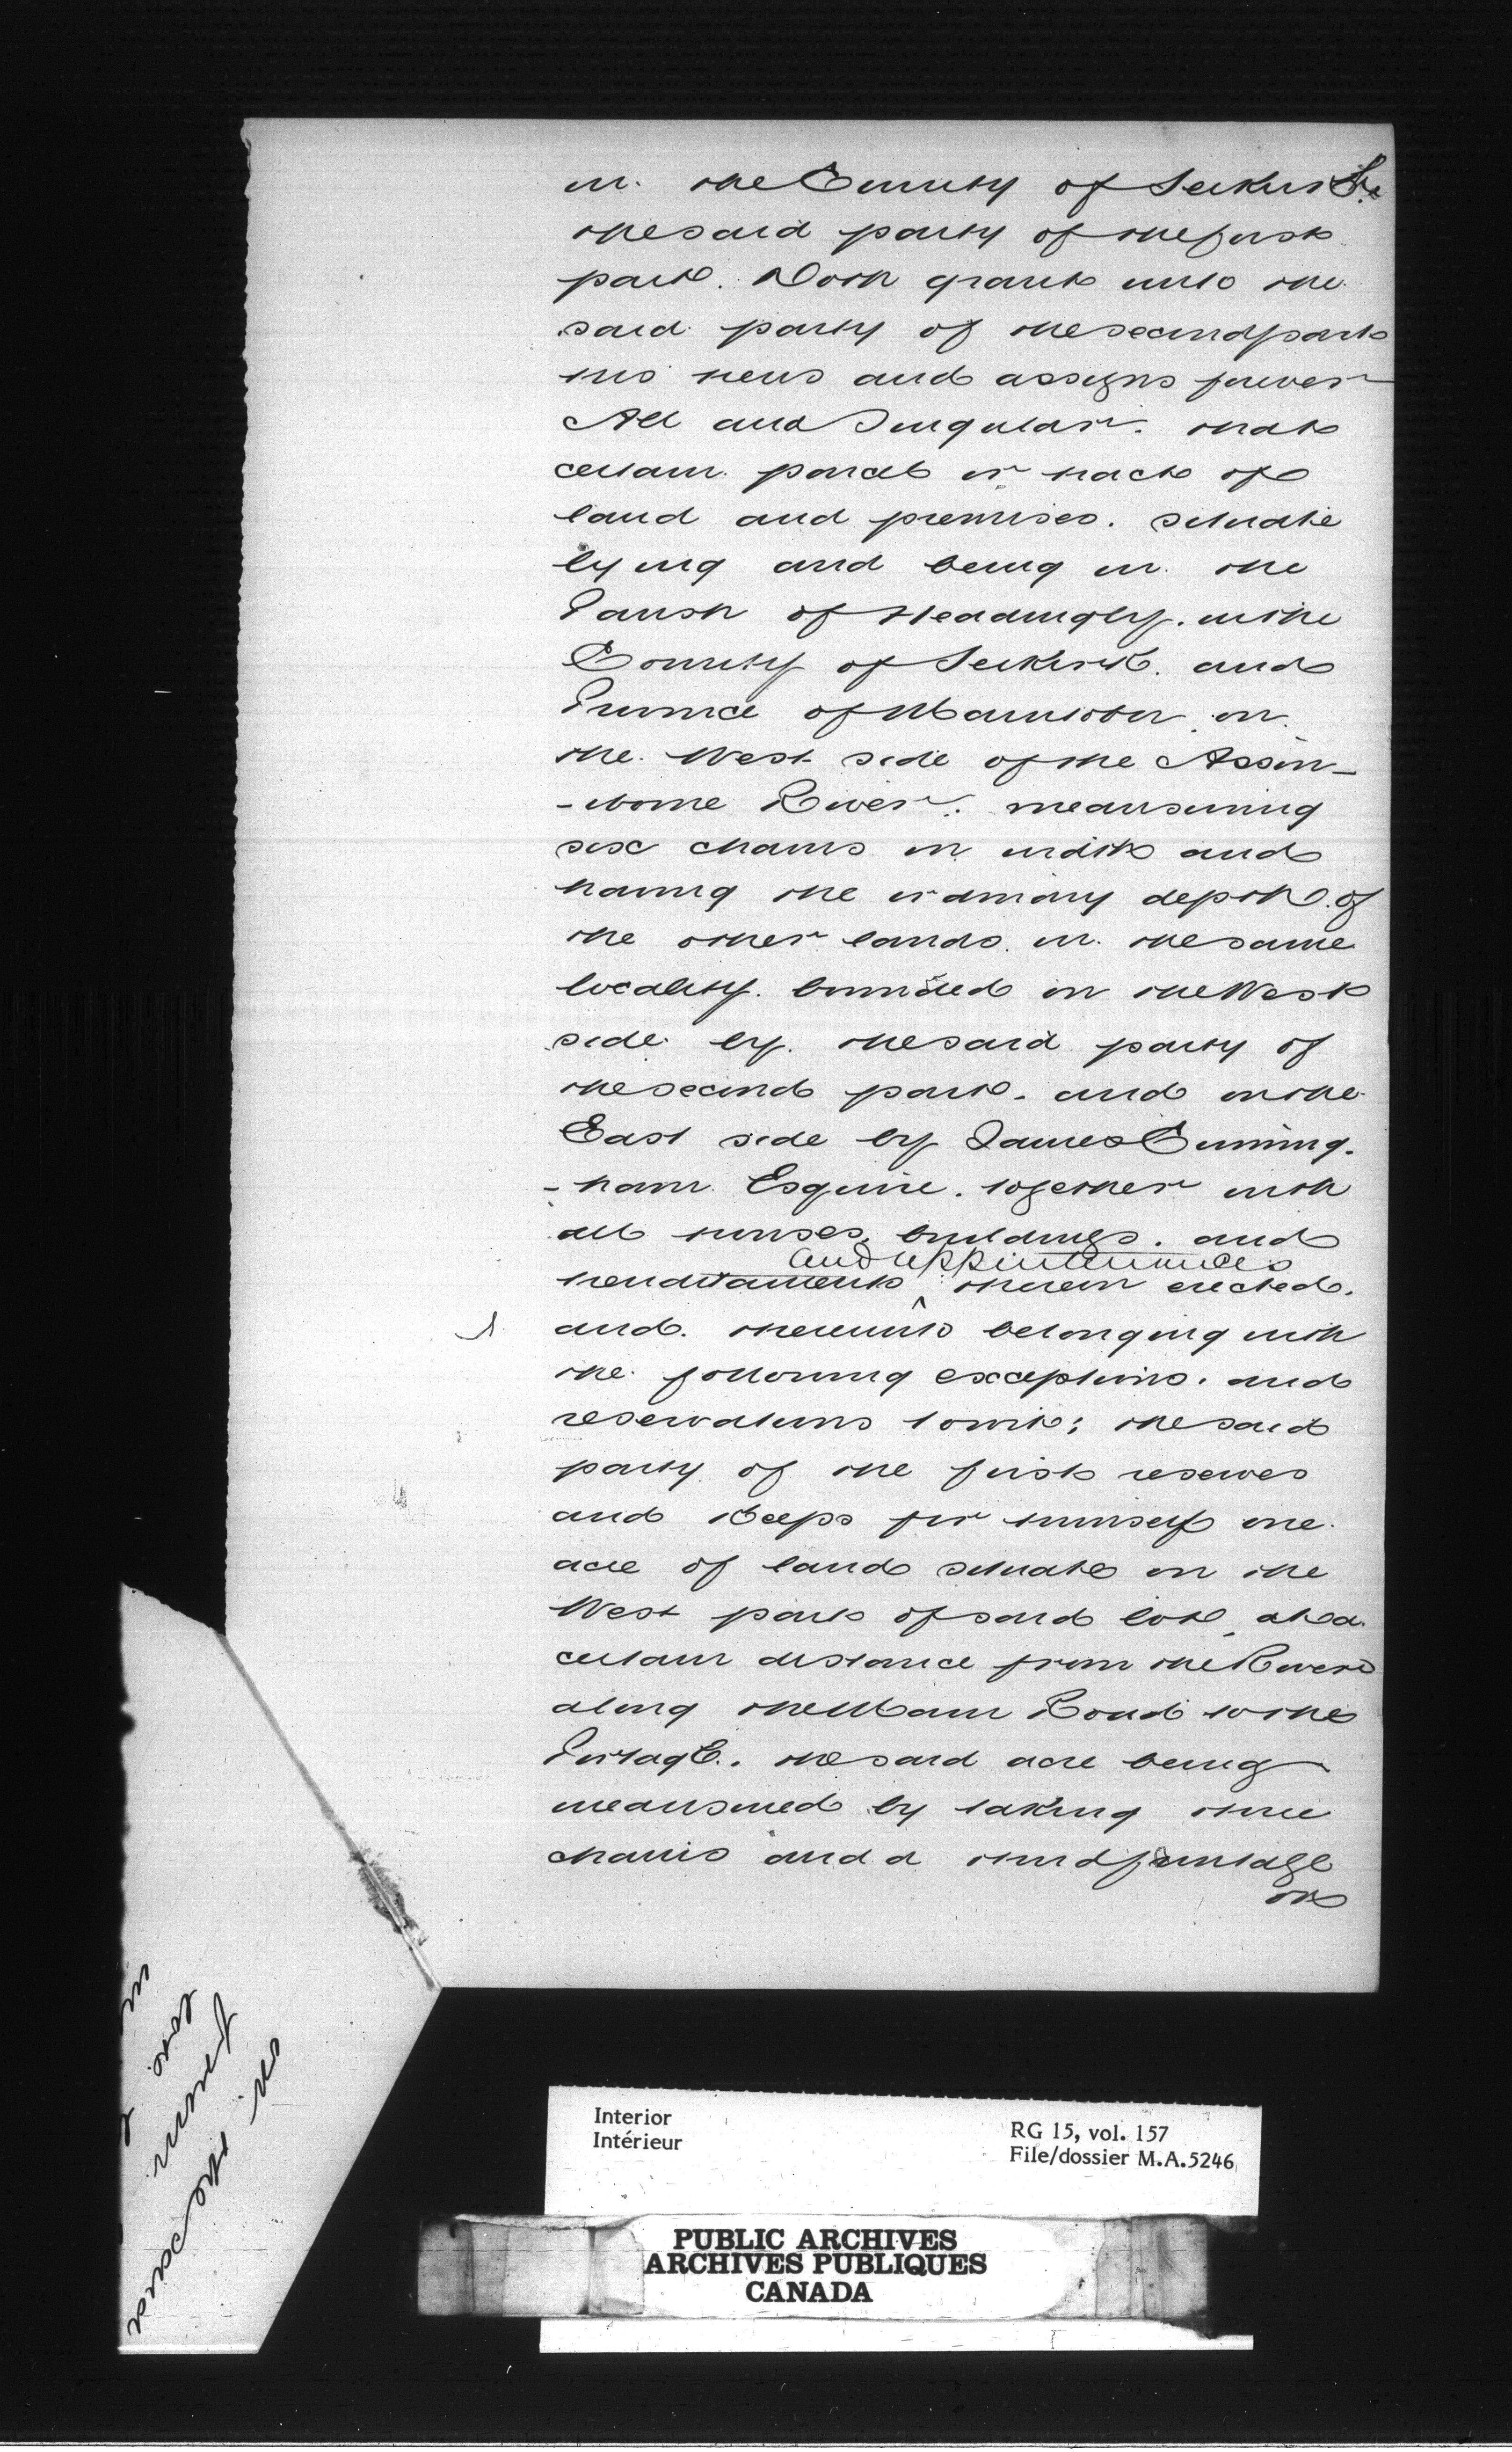 in the County of Selkirk &c
the said party of the first
part. Doth grant unto the
said party of the second part
his heirs and assigns forever
All and Singular. that
certain parcel or tract of
land and premises. situate
lying and being in the
Parish of Headingly. in the
County of Selkirk. and
Province of Manitoba on
the West side of the Assin-
-iboine River. meansuring
six chains in width and
having the ordinary depth of
the other lands in the same
locality. bounded on the West
side by the said party of
the second part. and on the
East side by James Cunning-
-ham Esquire. together with
all houses, buildings. and
and appurtenances
hereditaments therein erected.
and thereunto belonging with
the following exceptions. and
reservations towit; the said
party of the first reserves
and keeps for himself one
acre of land situate on the
West part of said lot, at a
certain distance from the River
along the Main Road to the
Portage. the said acre being
meansured by taking three
chains and a third frontage
on
in the same
Interior
Intérieur
RG 15, vol. 157
File/dossier M.A.5246
PUBLIC ARCHIVES
ARCHIVES PUBLIQUES
CANADA